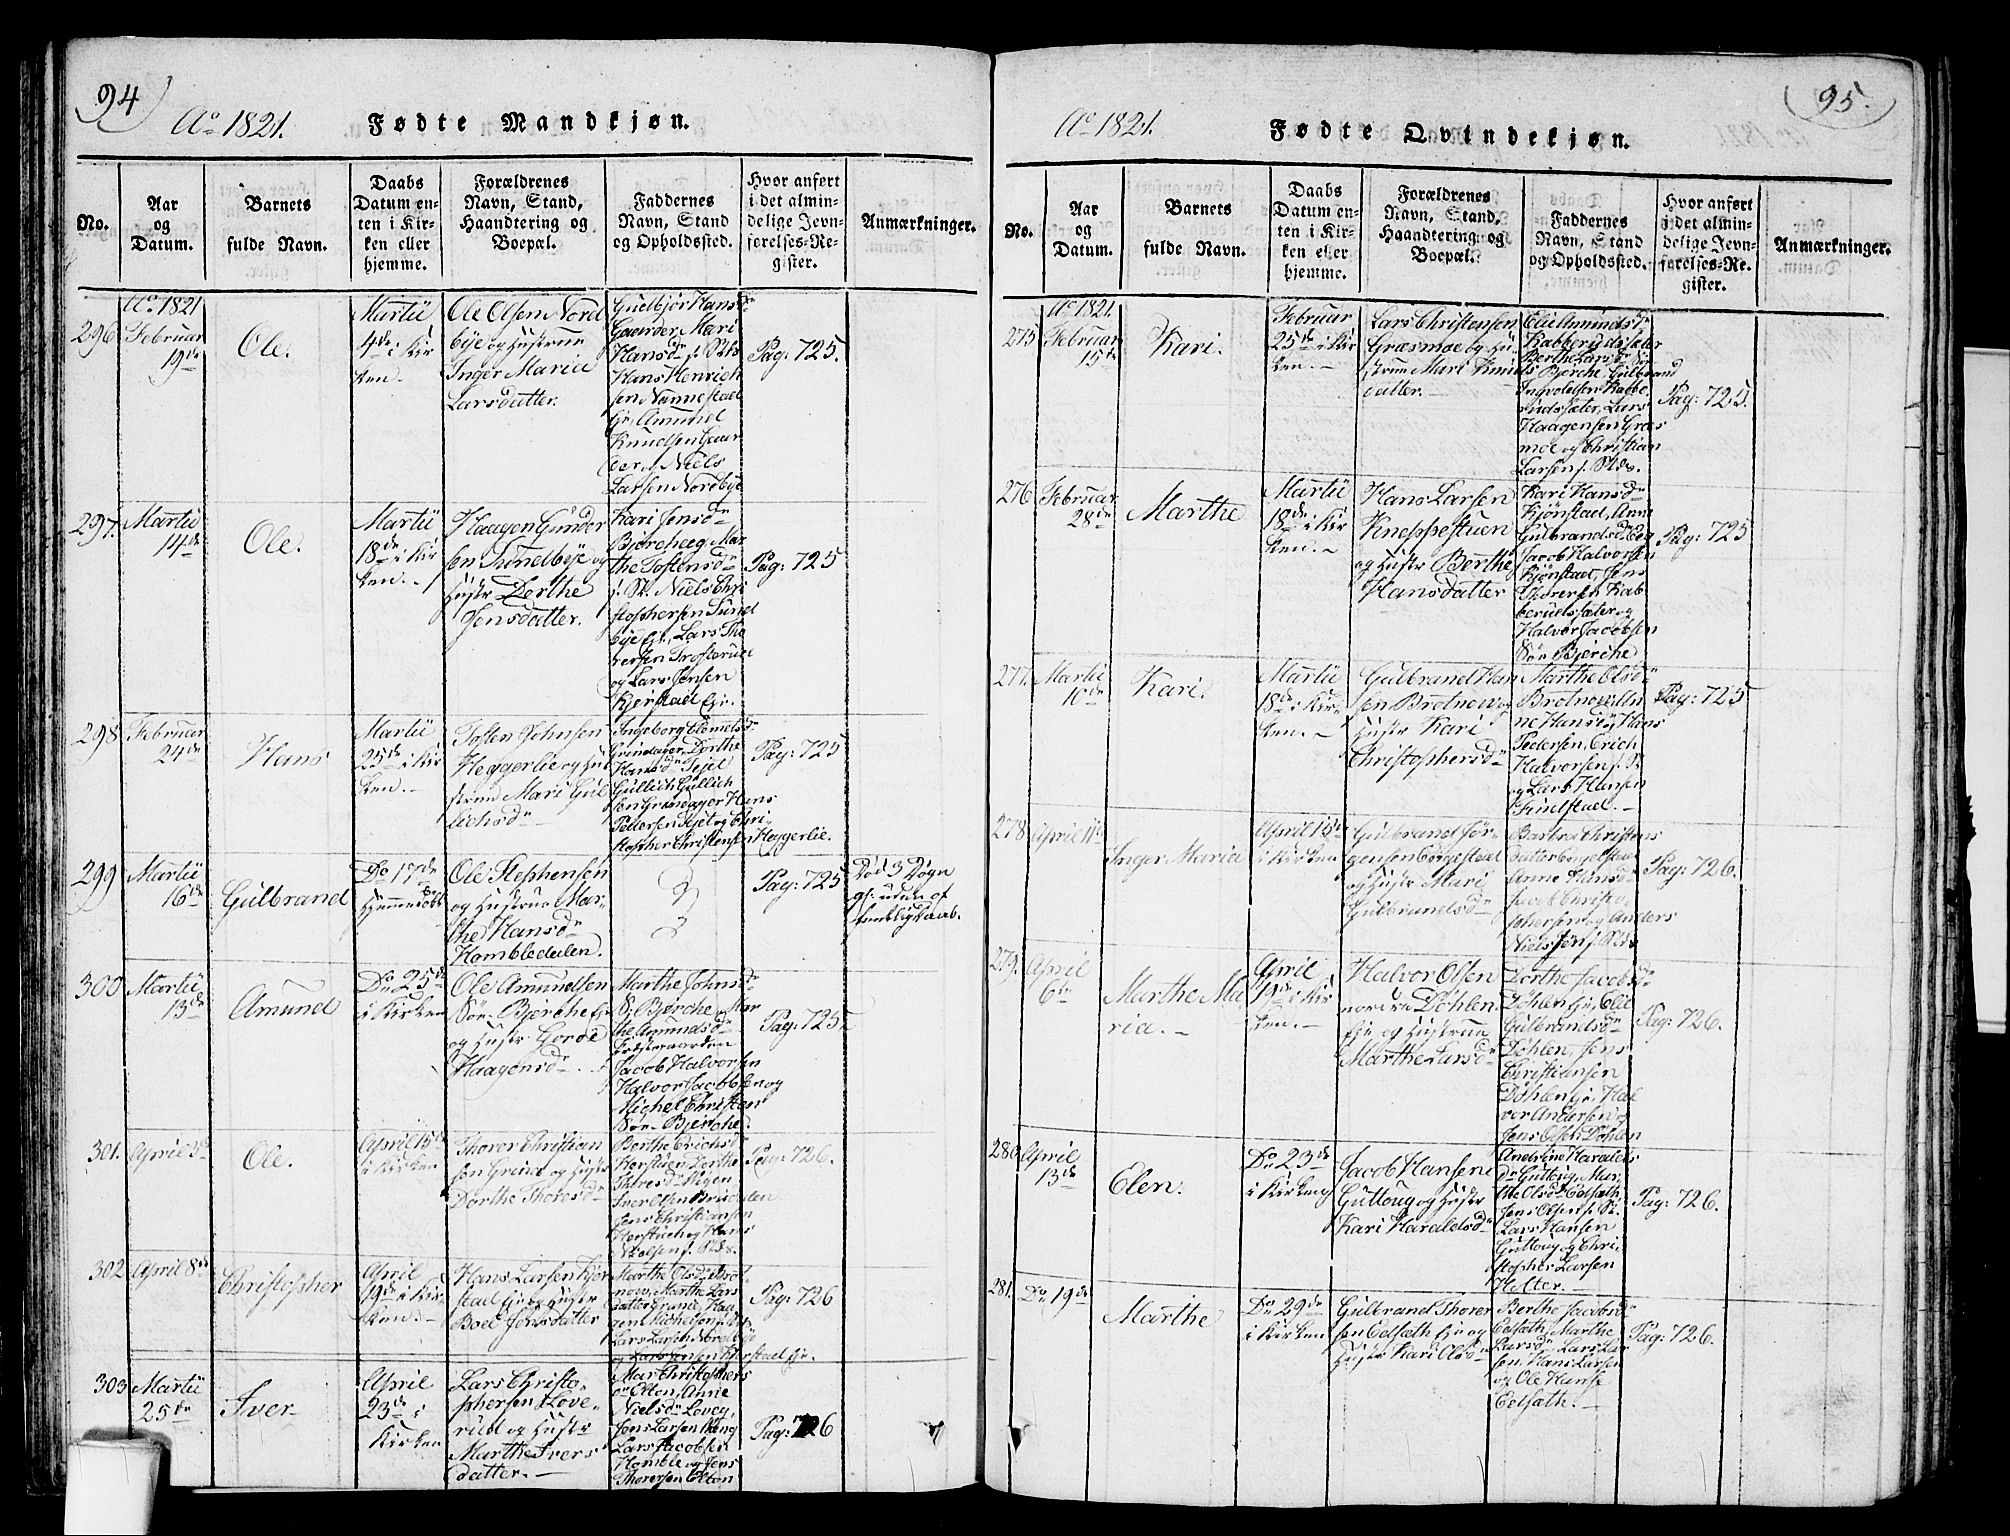 94
Ao 1821.
Fødte Mandkjøn.
No.
Aar
og
Datum.
Barnets
fulde Navn.
Daabs
Datum en-
ten i Kir-
ken eller
hjemme.
Forældrenes
Navn, Stand,
Haandtering og
Boepæl.
Faddernes
Navn, Stand
og Opholdssted.
Hvor anført
i det almin-
delige Jevn-
førelses-Re-
gister.
Anmærkninger.
Ao 1821
296
Februar
19de
Ole.
Martii
4de i Kir
ken.
Ole Olsen Nord
bye og Hustrue
Inger Maria
Larsdatter.
Gulbjør Hansd
Gaarder, Mari
Hansd. i. St.
Hans Henrich
sen Nannestad
Ejr Amund
Knudsen Gaar
der, Niels
Larsen Nordbye
Pag: 725.
297.
Martii
14de
Ole.
Martii
18de i Kir
ken.
Haagen Gunder
sen Sundbye og
Hustr Dorthe
Jensdatter.
Kari Jensd
Bjerche Mar
the Tostensd
i. St. Niels Chri
stophersen Sund
bye Ejr, Lars Tho
rersen Trosterud
og Lars Jensen
Kjerstad Ejr.
Pag: 725
298
Februar
24de
Hans
Martii
25de i Kir
ken.
Tosten Johnsen
Heggerlie og Hu
strue Mari Gul
lichsd
Ingeborg Clemetsd
Grindager, Dorthe
Hansd Tejet
Gullich Gullich
sen Grindager Hans
Pedersen Tejet og Chri-
stopher Christensen Heggerlie.
Pag: 725
299
Martii
16de
Gulbrand
Do 17de
Hjemmedøbt
Ole Stephensen
og Hustrue Mar-
the Hansd
Hombledalen.
Pag: 725
Død 3 Døgn
gl. uden of-
fentlig Daab.
300
Martii
13de
Amund
Do 25de
i Kirken
Ole Amundsen
Sør Bjerche Ejr
og Hustr Gorde
Haagensd
Marthe Johnsd
S. Bjerche, Mar
the Amundsd
Jacob Halvorsen
Halvor Jacobsen og
Michel Christen
Sør Bjerche.
Pag: 725
301.
April 5te
Ole.
April 15de
i Kirken
Thorer Christian
sen Greina og Hustr
Dorthe Thoresd
Berthe Erichsd
Horstuen, Dorthe
Thoresd Stigen
Iver Olsen Brudalen
Jens Christiansen
Horstuen og Hans
Nielsen i. Stds.
Pag: 726.
302
April 8de
Christopher
April
19de i Kir-
ken.
Hans Larsen Kjer
stad Ejr og Hustr
Boel Jensdatter
Marthe Olsd Brot
now, Marthe Lars
datter Granie, Haa
gen Michelsen i. St.
Lars Larsen Nordbye
og Lars Jensen Kjerstad Ejr.
Pag: 726
303
Martii
25de
Iver
April
23de i
Kirken
Lars Christo-
phersen Love-
rud og Hustr
Marthe Ivers
datter.
Mar Christophers
d Elton, Anne
Nielsd Lovey,
Jens Larsen Hæng
Lars Jacobsen
Homble og Jens
Thorersen Elton
Pag: 726
95.
Ao 1821.
Fødte Qvindekjøn.
No.
Aar
og
Datum.
Barnets
fulde Navn.
Daabs
Datum en-
ten i Kir-
ken eller
hjemme.
Forældrenes
Navn, Stand,
Haandtering og
Boepæl.
Faddernes
Navn, Stand
og Opholdssted.
Hvor anført
i det almin-
delige Jevn-
førelses-Re-
gister.
Anmærkninger.
Ao 1821.
275
Februar
15de
Kari.
Februar
25de i Kir
ken.
Lars Christensen
Græsmoe og Hu
strue Mari Knuds
datter.
Elie Amundsd
Kabberudsæter
Berthe Larsd Sør
Bjerche Gulbrand
Ingvoldsen Kabbe
rudsæter, Lars
Haagensen Græs
moe og Christian
Larsen i. Stds.
Pag: 725.
276
Februar
28de
Marthe
Martii
18de i Kir
ken.
Hans Larsen
Kneppestuen
og Hustr Berthe
Hansdatter
Kari Hansd
Kjønstad, Anne
Gulbrandsd Eog
Jacob Halvorsen
Kjønstad, Jens
Thorersen Kab
berudsæter og
Halvor Jacobsen
Sør Bjerche
Pag: 725
277.
Martii
10de
Kari.
Martii
18de i Kir
ken.
Gulbrand Han
sen Brotnow og
Hustr Kari
Christophersd
Marthe Olsd
Brotnow An
ne Hansd Hans
Pedersen, Erich
Halvorsen i. St
og Lars Hansen
Findstad.
Pag: 725
278
April 11te
Inger Maria
April 15de
i Kirken
Gulbrand Jør-
gensen Engelstad
og Hustr Mari
Gulbrandsd
Barbra Christens
datter Engelstad
Anne Hansd
Jacob Christo
phersen og Anders
Nielsen i. Stds
Pag: 726.
279.
April
6te
Marthe Ma
ria.
April
19de i Kir
ken.
Halvor Olsen
nordre Døhlen
Eje og Hustrue
Marthe Larsd
Dorthe Jacobsd
Døhlen Ejr, Elie
Gulbrandsd
Døhlen, Jens
Christiansen
Døhlen Ejr, Hal
vor Andersen og
Jens Olsen Døhlen
Pag: 726.
280
April
13de
Elen.
Do 23de
i Kirken
Jacob Hansen
Guttoug og Hustr
Kari Haraldsd
Andrine Haralds
d Guttoug, Mar
the Olsd Eelsæth,
Jens Olsen i. St.
Lars Hansen
Guttoug og Chri
stopher Larsen
Helter.
Pag: 726.
281.
Do 19de
Marthe
Do 29de
i Kirken
Gulbrand Thorer
sen Eelsæth Eje og
Hustr Kari Olsd
Berthe Jacobsd
Eelsæth, Marthe
Larsd, Lars Lar
sen, Hans Larsen
og Ole Hanse
Eelsæth.
Pag: 726.